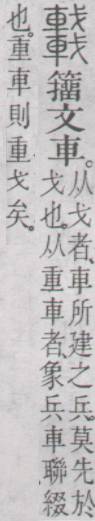 𨏖籀文車。从戈者、車所建之兵。莫先於
戈也。从重車者、象兵車聯綴
也。重車則重戈矣。